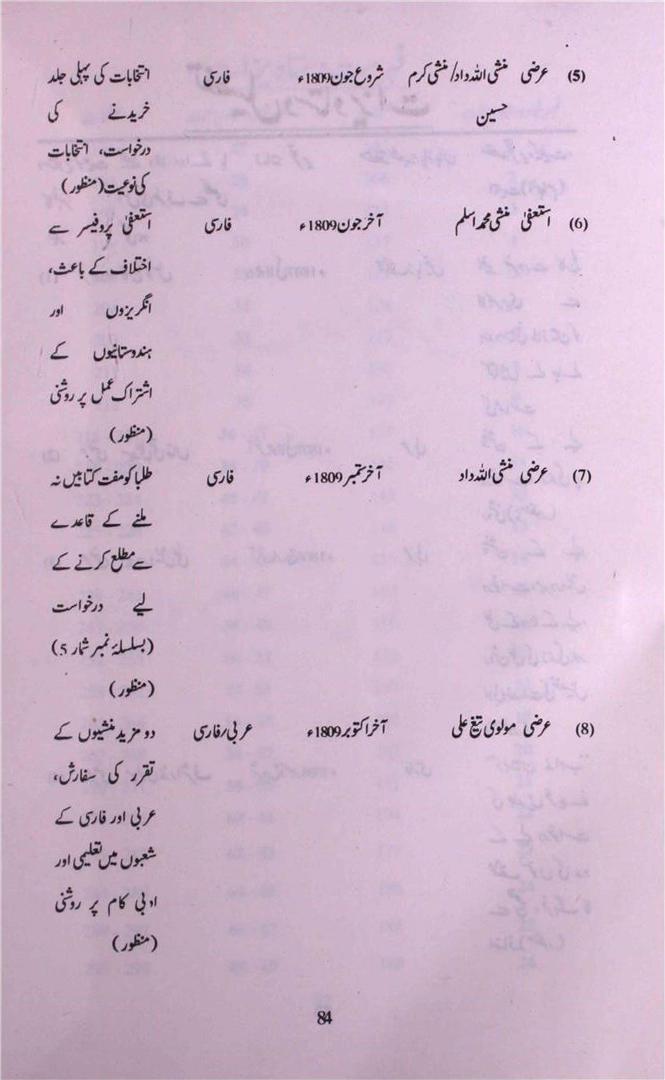 (5) عرضی منشی اللہ داد/منشی کرم شروع جون 1809ء فارسی انتخابات کی پہلی جلد
حسین خریدنے کی
درخواست، انتخابات
کی نوعیت (منظور)
(6) استعفیٰ منشی محمد اسلم آخر جون 1809ء فارسی استعفیٰ پروفیسر سے
اختلاف کے باعث،
انگریزوں اور
ہندوستانیوں کے
اشتراک عمل پر روشنی
(منظور)
(7) عرضی منشی اللہ داد آخر ستمبر 1809ء فارسی طلبا کو مفت کتابیں نہ
ملنے کے قاعدے
سے مطلع کرنے کے
لیے درخواست
(بسلسلۂ نمبر شمار 5)
(منظور)
(8) عرضی مولوی تیغ علی آخر اکتوبر 1809ء عربی/فارسی دو مزید منشیوں کے
تقرر کی سفارش،
عربی اور فارسی کے
شعبوں میں تعلیمی اور
ادبی کام پر روشنی
(منظور)
84